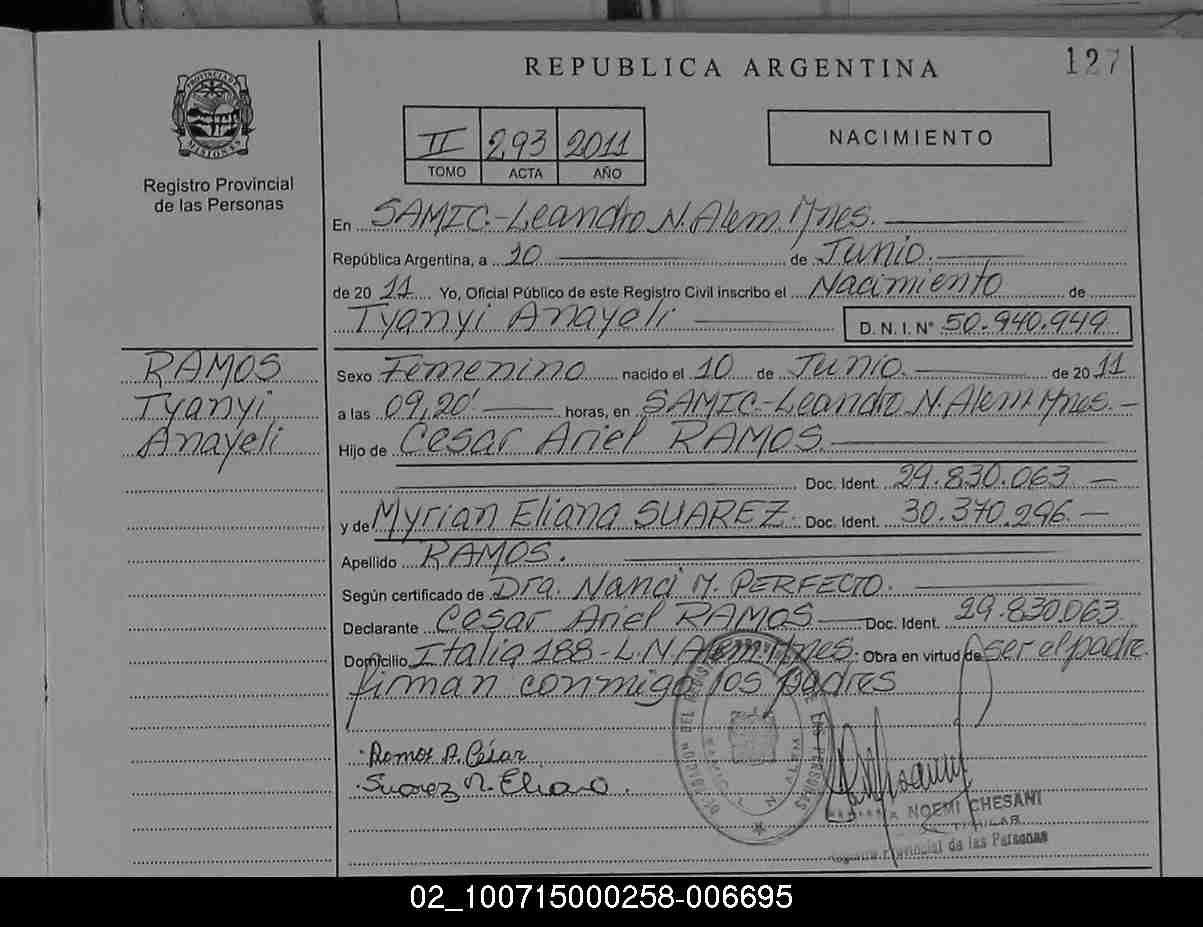 REPUBLICA ARGENTINA
127
PROVINCIA DE MISIONES
Registro Provincial
de las Personas
II 293 2011
TOMO ACTA AÑO
NACIMIENTO
En SAMIC.-Leandro N. Alem. Mnes.
República Argentina, a 10 de Junio.
de 20 11 Yo, Oficial Público de este Registro Civil inscribo el Nacimiento de
Tyanyi Anayeli D. N. I. N° 50.940.949
RAMOS
Tyanyi
Anayeli
Sexo Femenino nacido el 10 de Junio. de 20 11
a las 09,20' horas, en SAMIC.-Leandro N. Alem Mnes.-
Hijo de Cesar Ariel RAMOS.
Doc. Ident. 29.830.063 -
y de Myrian Eliana SUAREZ. Doc. Ident. 30.370.296. -
Apellido RAMOS.
Según certificado de Dra. Nanci M. PERFECTO.
Declarante Cesar Ariel RAMOS Doc. Ident. 29.830.063.
Domicilio Italia 188-L.N.Alem. Mnes. Obra en virtud de ser el padre
firman conmigo los padres
Ramos A. César
Suarez M. Eliana.
NOEMI CHESANI
TITULAR
Registro Provincial de las Personas
02_100715000258-006695